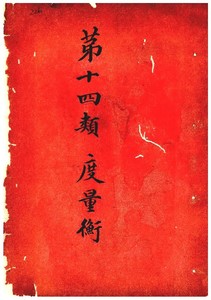 第十四類 度量衡